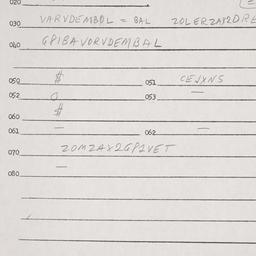 020
030 VARVDEMBØL = BAL ZOLERZAX2DRE
040 GPIBAVORVDEMBAL
050 # 051 CEJXNS
052 O 053 —
060 #
061 — 062 —
070 ZOMZAX2GP2VET
080 —